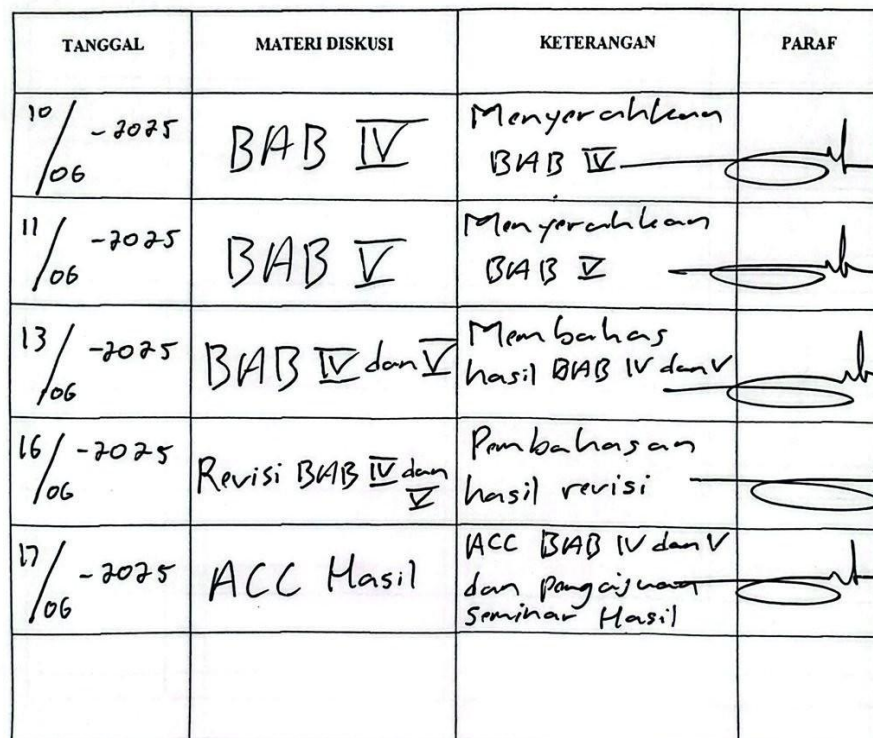 TANGGAL MATERI DISKUSI KETERANGAN PARAF
10/06-2025 BAB IV Menyerahkan
BAB IV
11/06-2025 BAB V Menyerahkan
BAB V
13/06-2025 BAB IV dan V Membahas
hasil BAB IV dan V
16/06-2025 Revisi BAB IV dan
V
Pembahasan
hasil revisi
17/06-2025 ACC Hasil ACC BAB IV dan V
dan pengajuan
Seminar Hasil